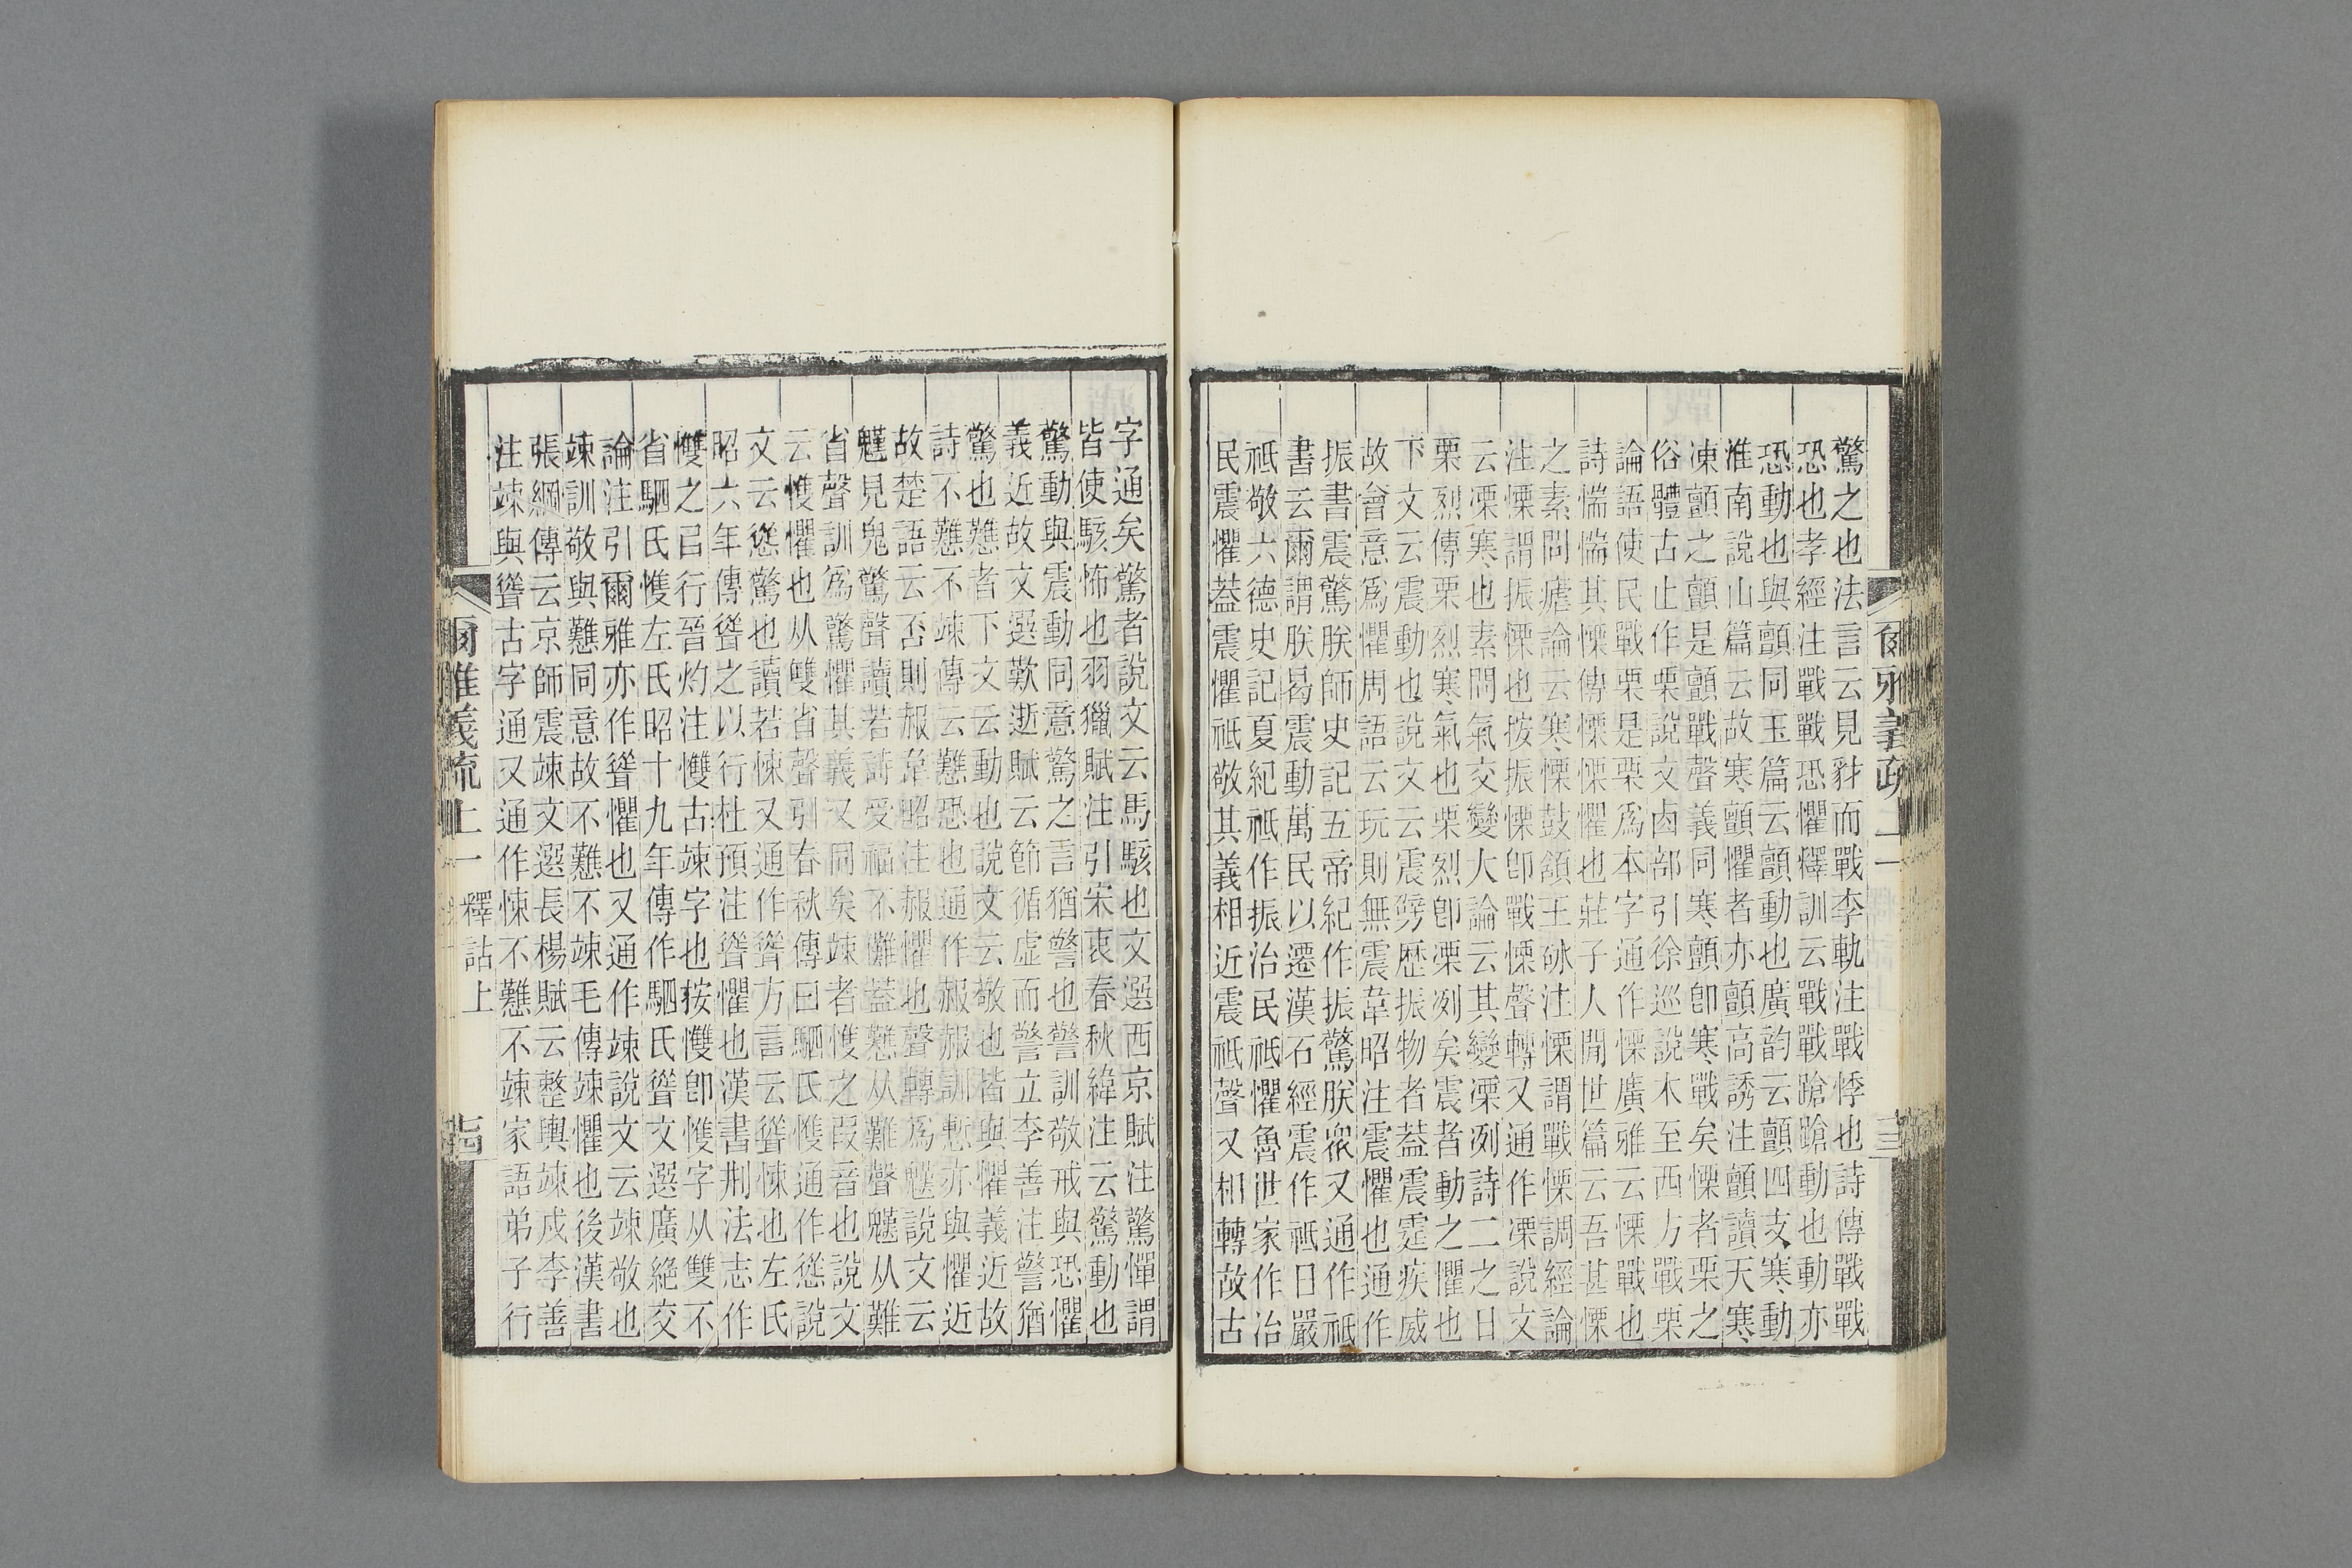 驚之也法言云見豺而戰李軌注戰悸也詩傳戰戰
恐也孝經注戰戰恐懼釋訓云戰戰蹌蹌動也動亦
恐動也與顫同玉篇云顫動也廣韵云顫四支寒動
淮南說山篇云故寒顫懼者亦顫高誘注顫讀天寒
凍顫之顫是顫戰聲義同寒顫卽寒戰矣慄者栗之
俗體古止作栗說文㔽部引徐巡說木至西方戰栗
論語使民戰栗是栗爲本字通作慄廣雅云慄戰也
詩惴惴其慄傳慄懼也莊子人閒世篇云吾甚慄
之素問瘧論云寒慄鼓頷王砅注慄謂戰慄調經論
注慄謂振慄也按振慄卽戰慄聲轉又通作凓說文
云凓寒也素問氣交變大論云其變凓冽詩二之日
栗烈傳栗烈寒氣也栗烈卽凓冽矣震者動之懼也
下文云震動也說文云震劈歷振物者蓋震霆疾威
故會意爲懼周語云玩則無震韋昭注震懼也通作
振書震驚朕師史記五帝紀作振驚朕衆又通作祗
書云爾謂朕曷震動萬民以遷漢石經震作祗日嚴
祗敬六德史記夏紀祗作振治民祗懼魯世家作治
民震懼蓋震懼祗敬其義相近震祗聲又相轉故古
爾雅義疏 上一 三
字通矣驚者說文云馬駭也文選西京賦注驚憚謂
皆使駭怖也羽獵賦注引宋衷春秋緯注云驚動也
驚動與震動同意驚之言猶警也警訓敬戒與恐懼
義近故文選歎逝賦云節循虛而警立李善注警猶
驚也戁者下文云動也說文云敬也揩與懼義近故
詩不戁不竦傳云戁恐也通作赧赧訓慙亦與懼近
故楚語云否則赧韋昭注赧懼也聲轉爲㒟說文云
㒟見鬼驚聲讀若詩受福不儺蓋戁从難聲㒟从難
省聲訓爲驚懼其義又同矣竦者愯之叚音也說文
云愯懼也从雙省聲引春秋傳曰駟氏愯通作慫說
文云慫驚也讀若悚又通作聳方言云聳悚也左氏
昭六年傳聳之以行杜預注聳懼也漢書刑法志作
㩳之㠯行晉灼注㩳古竦字也按㩳卽愯字从雙不
省駟氏愯左氏昭十九年傳作駟氏聳文選廣絕交
論注引爾雅亦作聳懼也又通作竦說文云竦敬也
竦訓敬與戁同意故不戁不竦毛傳竦懼也後漢書
張綱傳云京師震竦文選長楊賦云整輿竦戎李善
注竦與聳古字通又通作悚不戁不竦家語弟子行
爾雅義疏 上一 釋詁上 十四